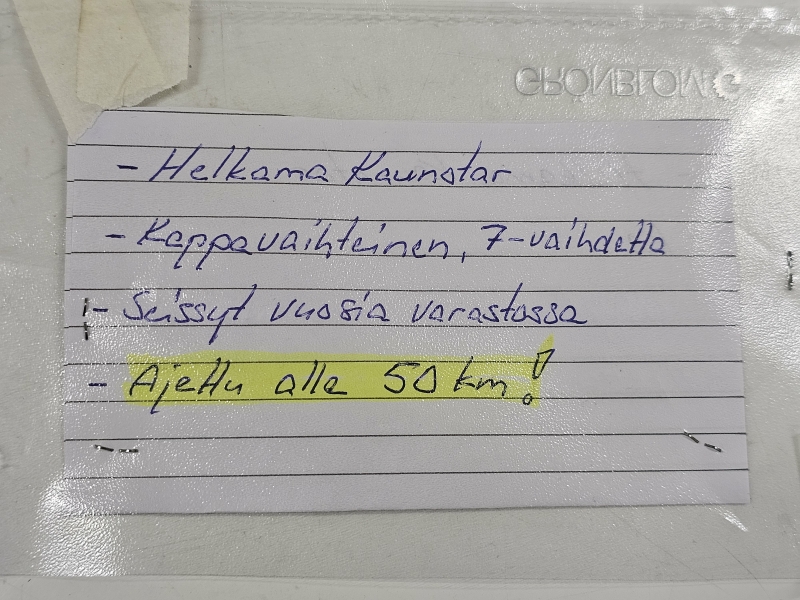 GRÖNBLOM
- Helkama Kaunotar
- Kappavaihteinen, 7-vaihdetta
- Seissyt vuosia varastossa
- Ajettu alle 50 km!